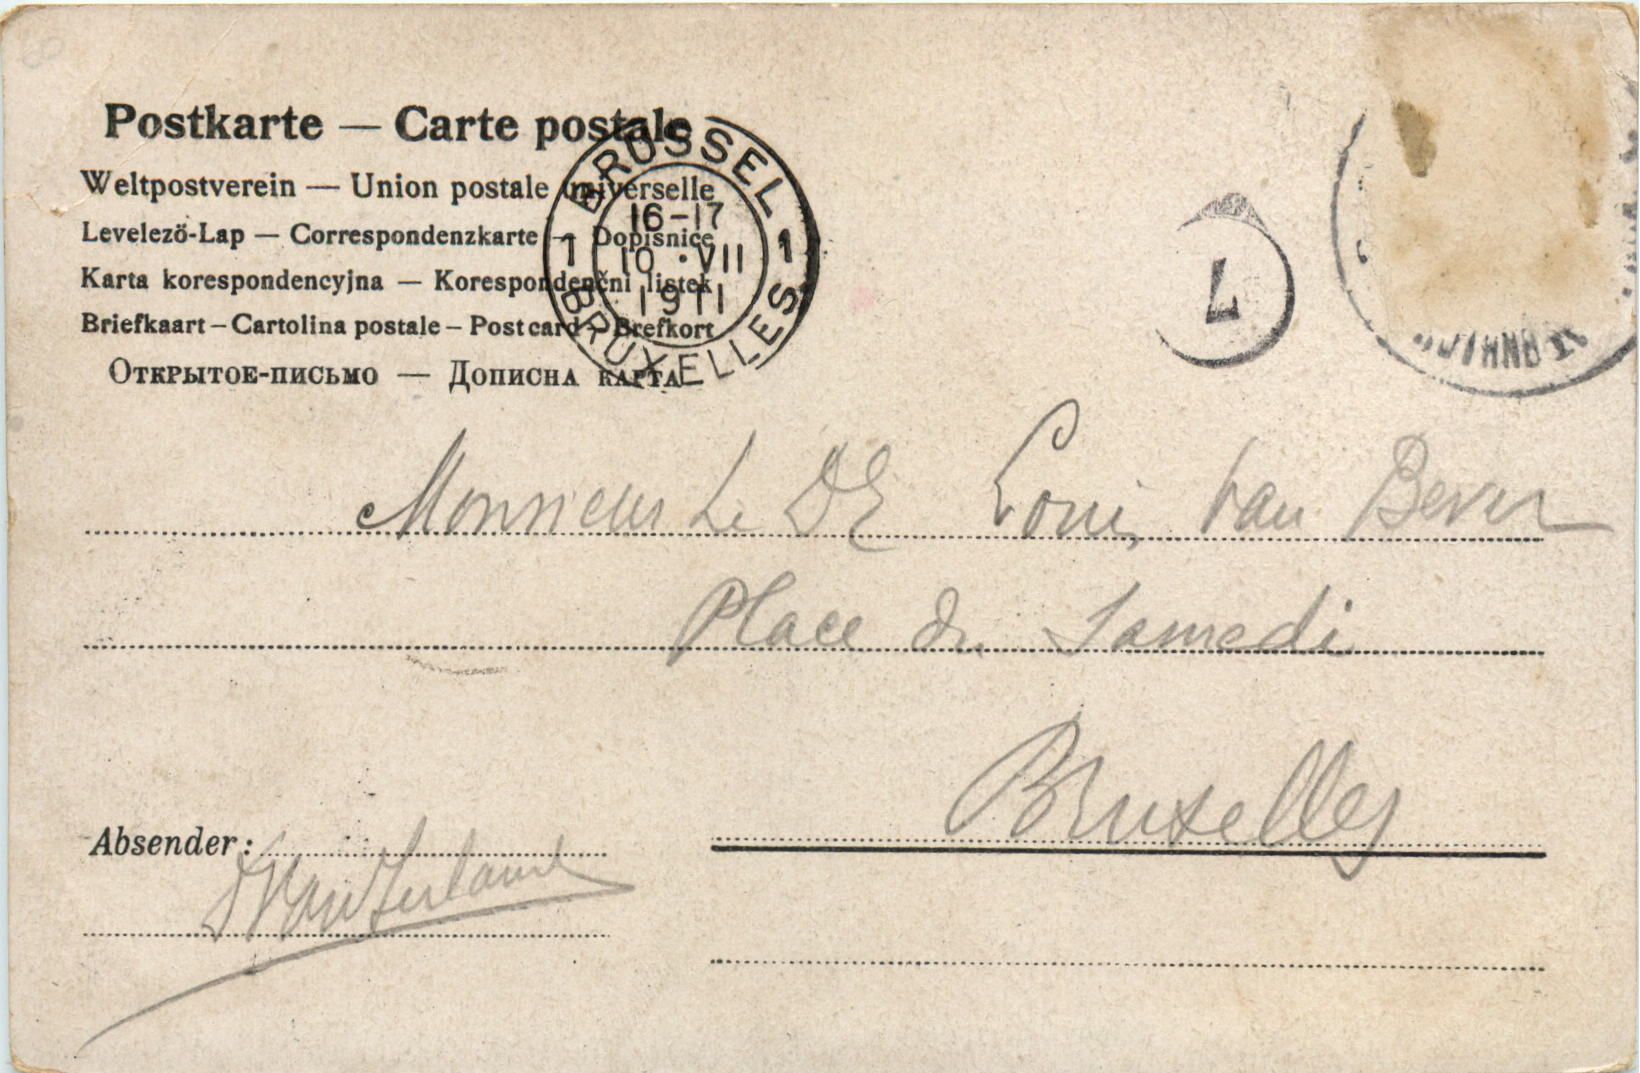 Postkarte — Carte postale
Weltpostverein — Union postale universelle
Levelező-Lap — Correspondenzkarte — Dopisnice
Karta korespondencyjna — Korespondenční listek
Briefkaart – Cartolina postale – Post card – Brefkort
Открытое-письмо — Дописна карта
BRÜSSEL
1 1
16-17
10 · VII
1911
BRUXELLES
7
Monsieur Le Louis Van Bever
Place du Samedi
Bruxelles
Absender: